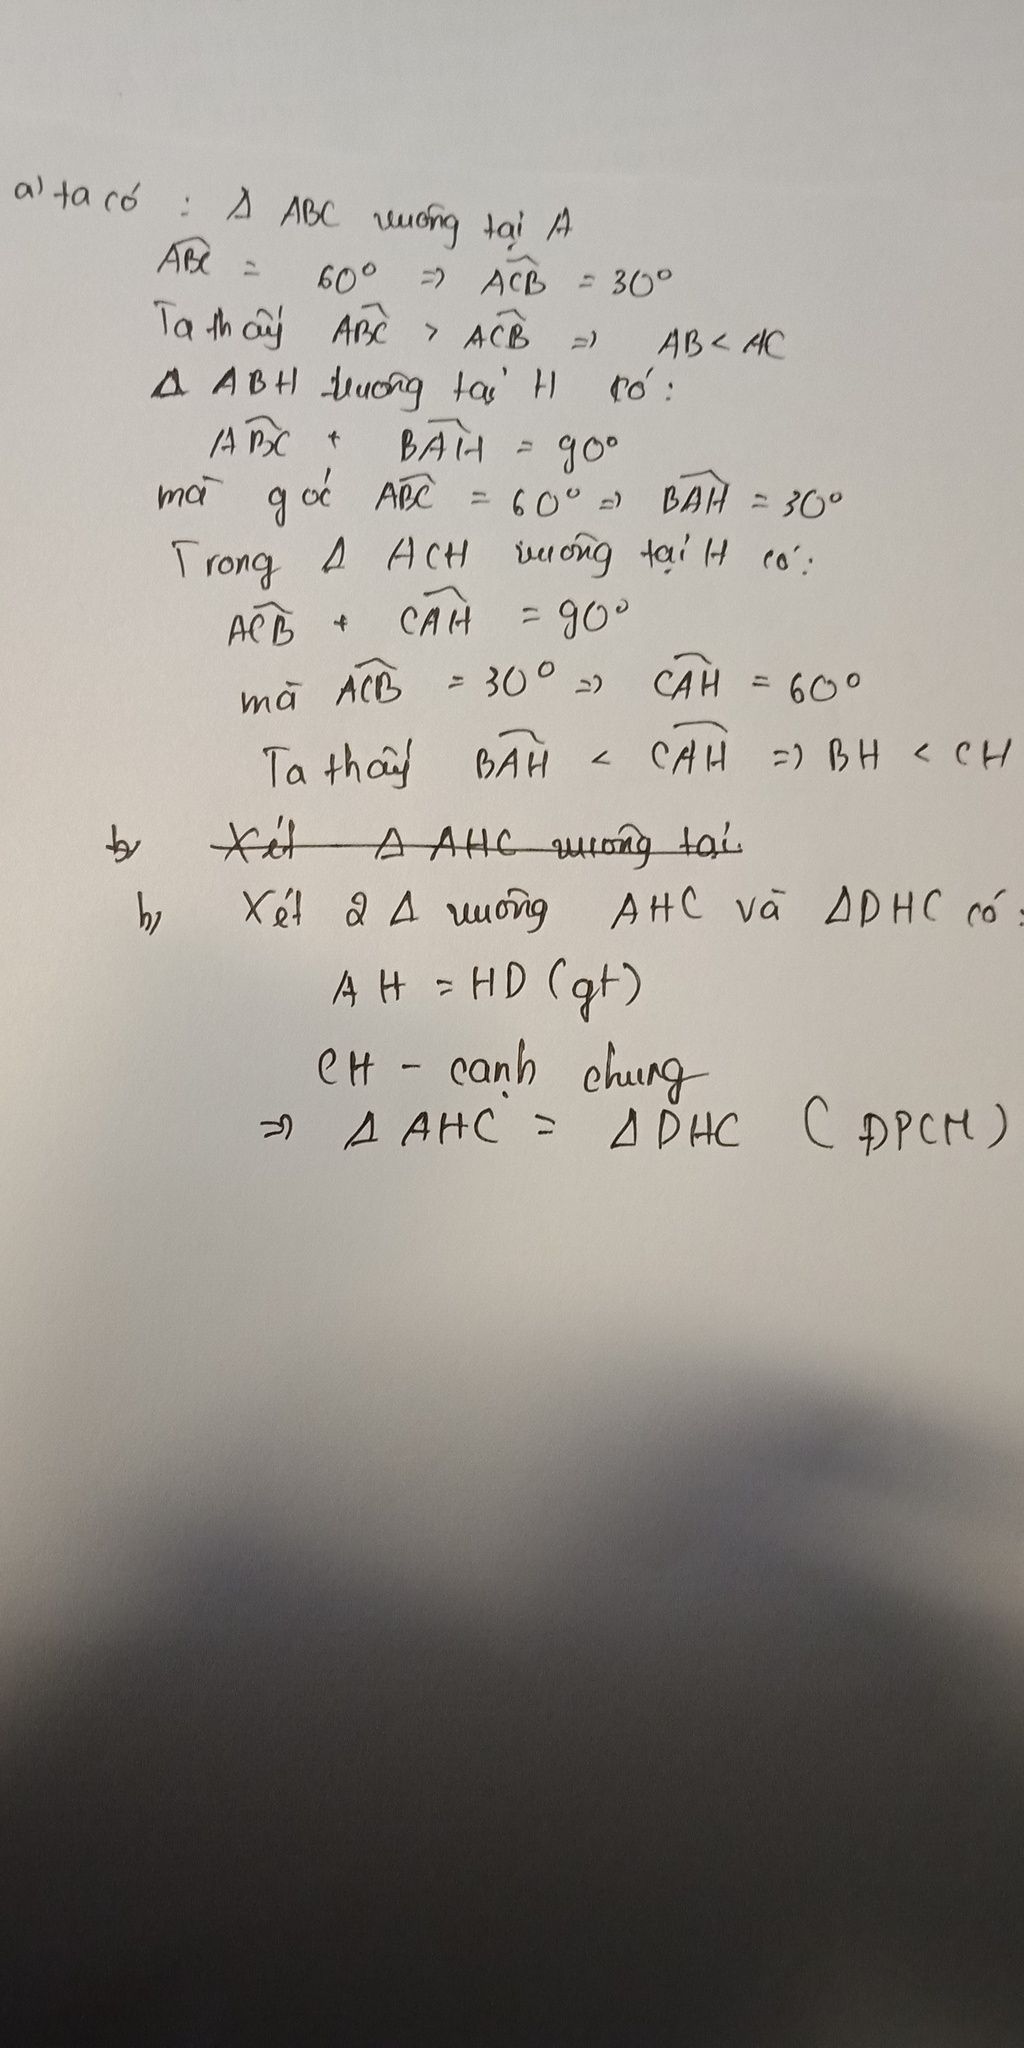 a) ta có : Δ ABC vuông tại A
ABC = 60° => ACB = 30°
Ta thấy ABC > ACB => AB < AC
Δ ABH vuông tại H có :
ABC + BAH = 90°
mà góc ABC = 60° => BAH = 30°
Trong Δ ACH vuông tại H có :
ACB + CAH = 90°
mà ACB = 30° => CAH = 60°
Ta thấy BAH < CAH => BH < CH
b, Xét Δ AHC vuông tại
b, Xét 2 Δ vuông AHC và ΔDHC có :
AH = HD (gt)
CH - cạnh chung
=> Δ AHC = ΔDHC (ĐPCM)